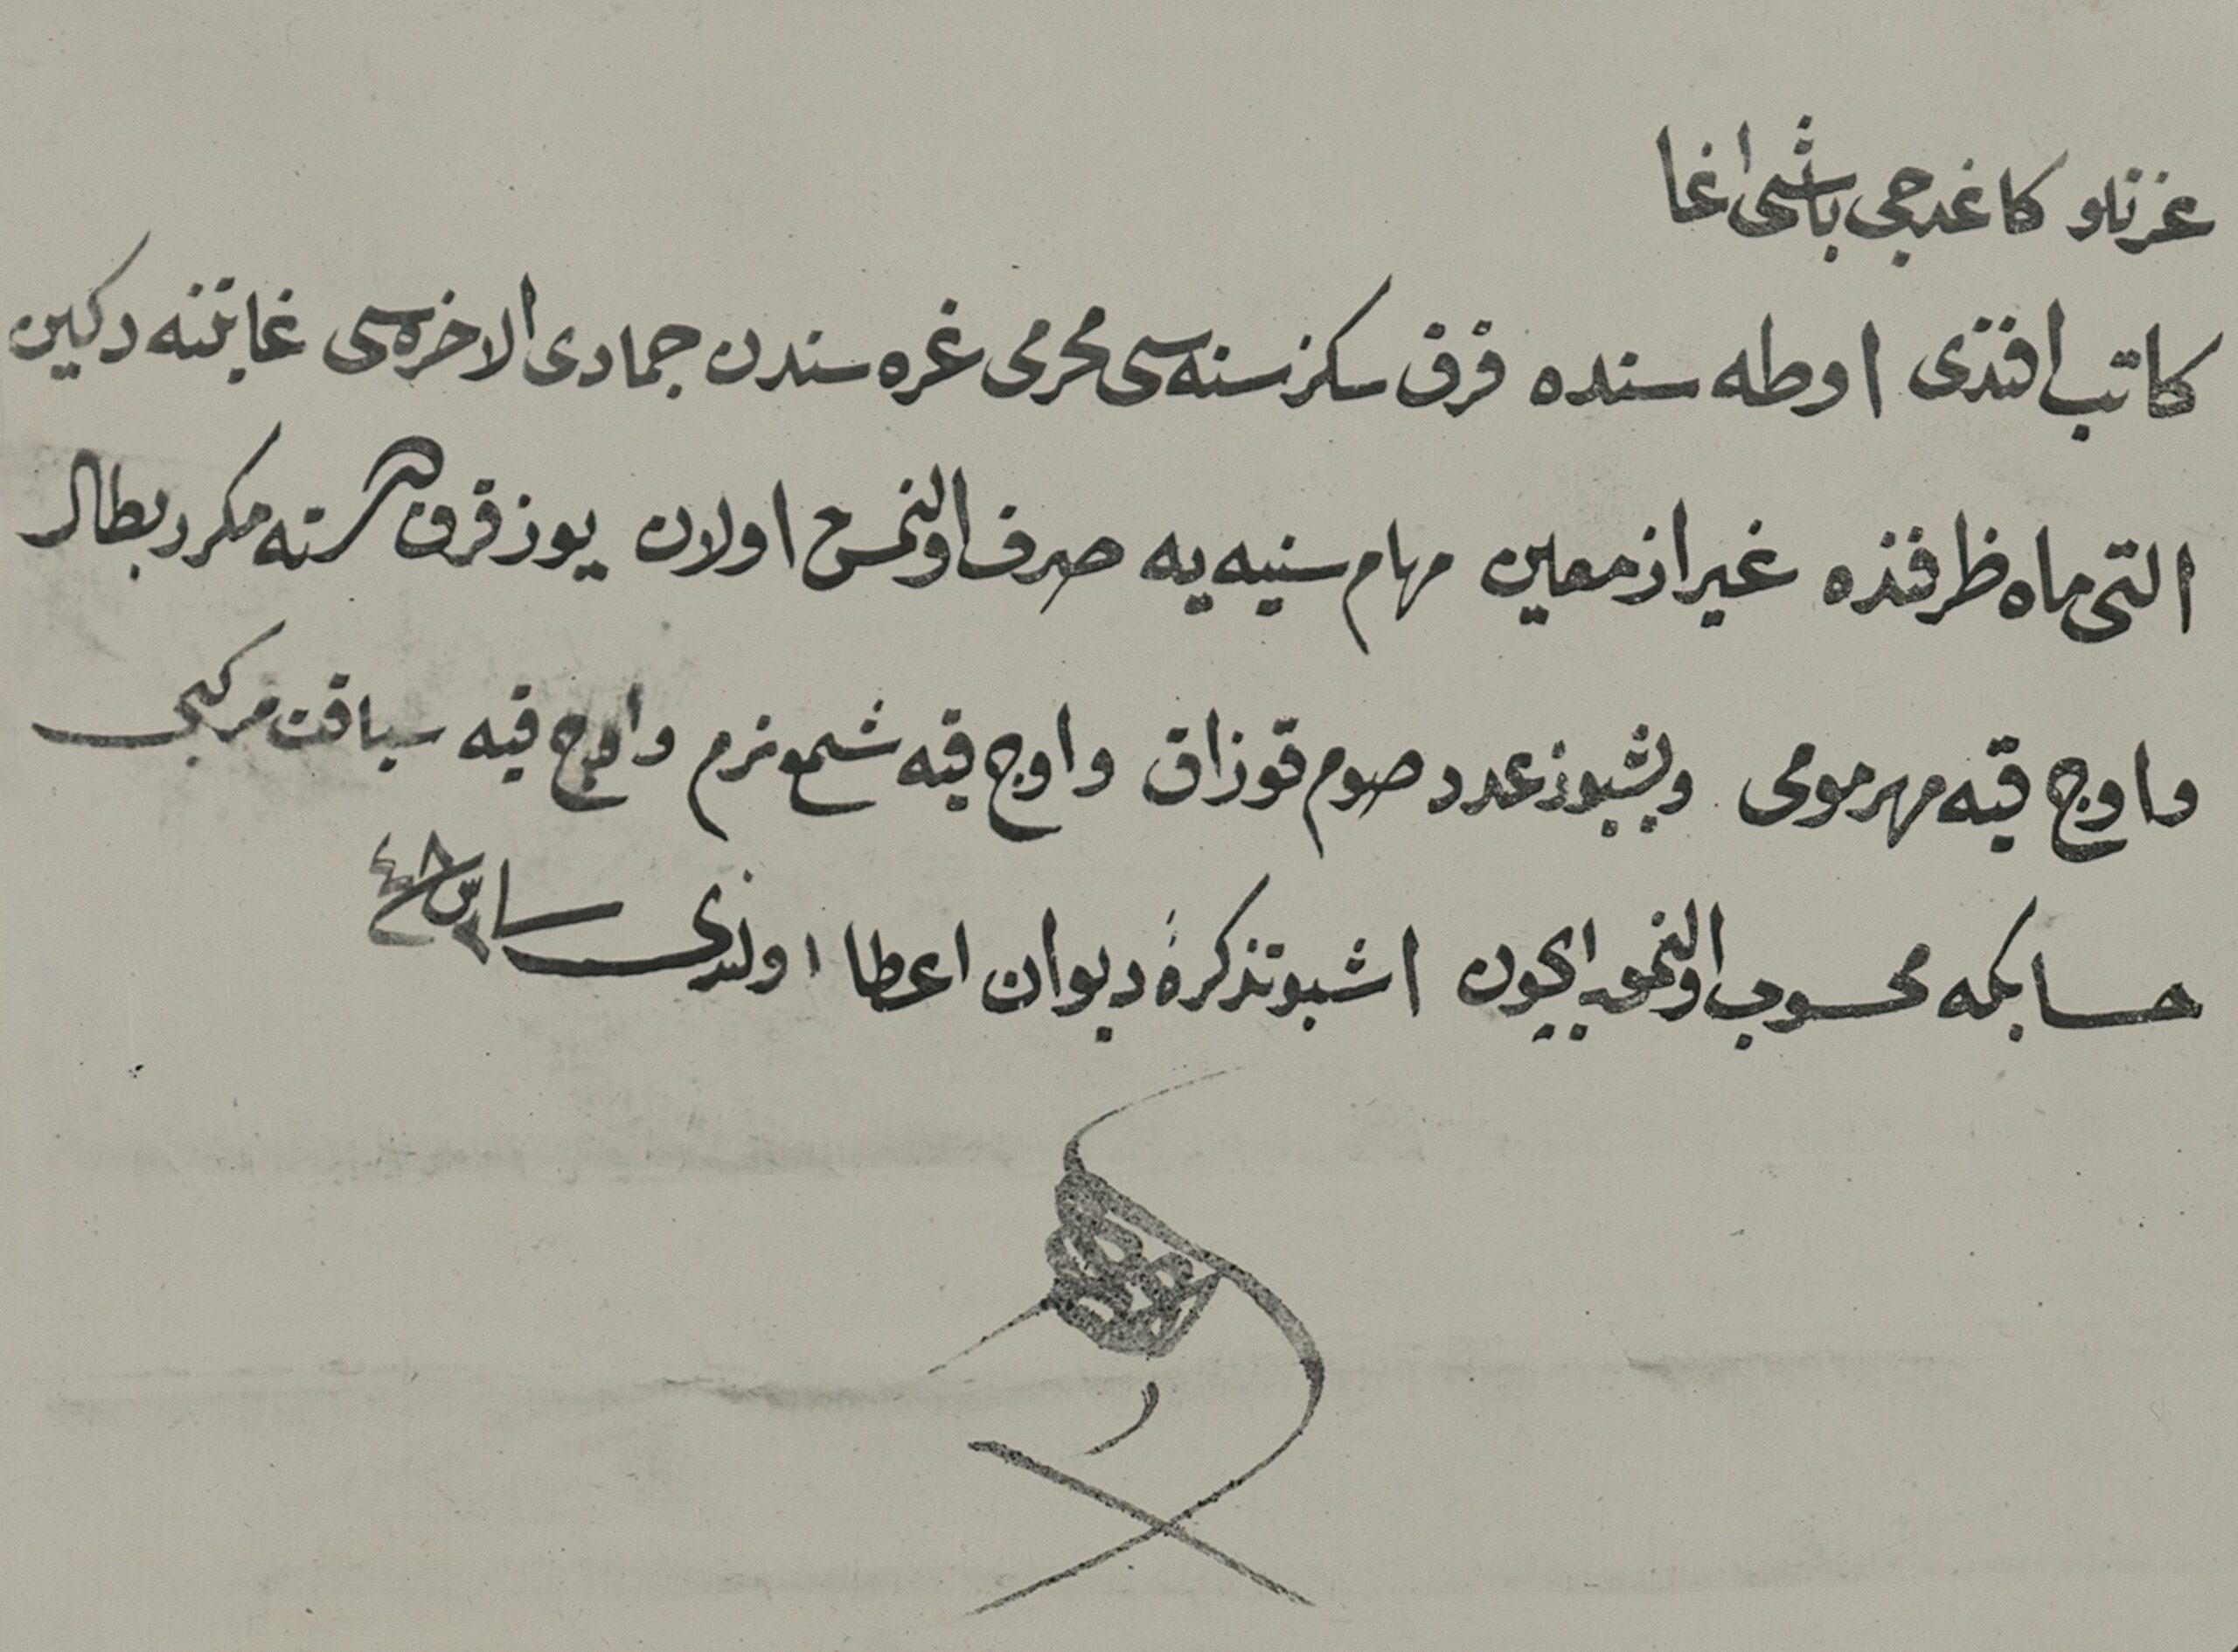 عزتلو كاغدجی باشی اغا
كاتب افندی اوطه سنده قرق سكز سنه سی محرمی غره سندن جمادی الاخره سی غایتنه دكین
التی ماه ظرفنده غیر از معین مهام سنیه یه صرف اولنمش اولان یوز قرق دسته مكرر بطال
و اوچ قیه مهر مومی و بشیوز عدد صوم قوزاق و اوچ قیه شمع نرم و اوچ قیه سیاقت مركبی
حسابكمه محسوب اولنمق ایچون اشبو تذكرهٔ دیوان اعطا اولندی